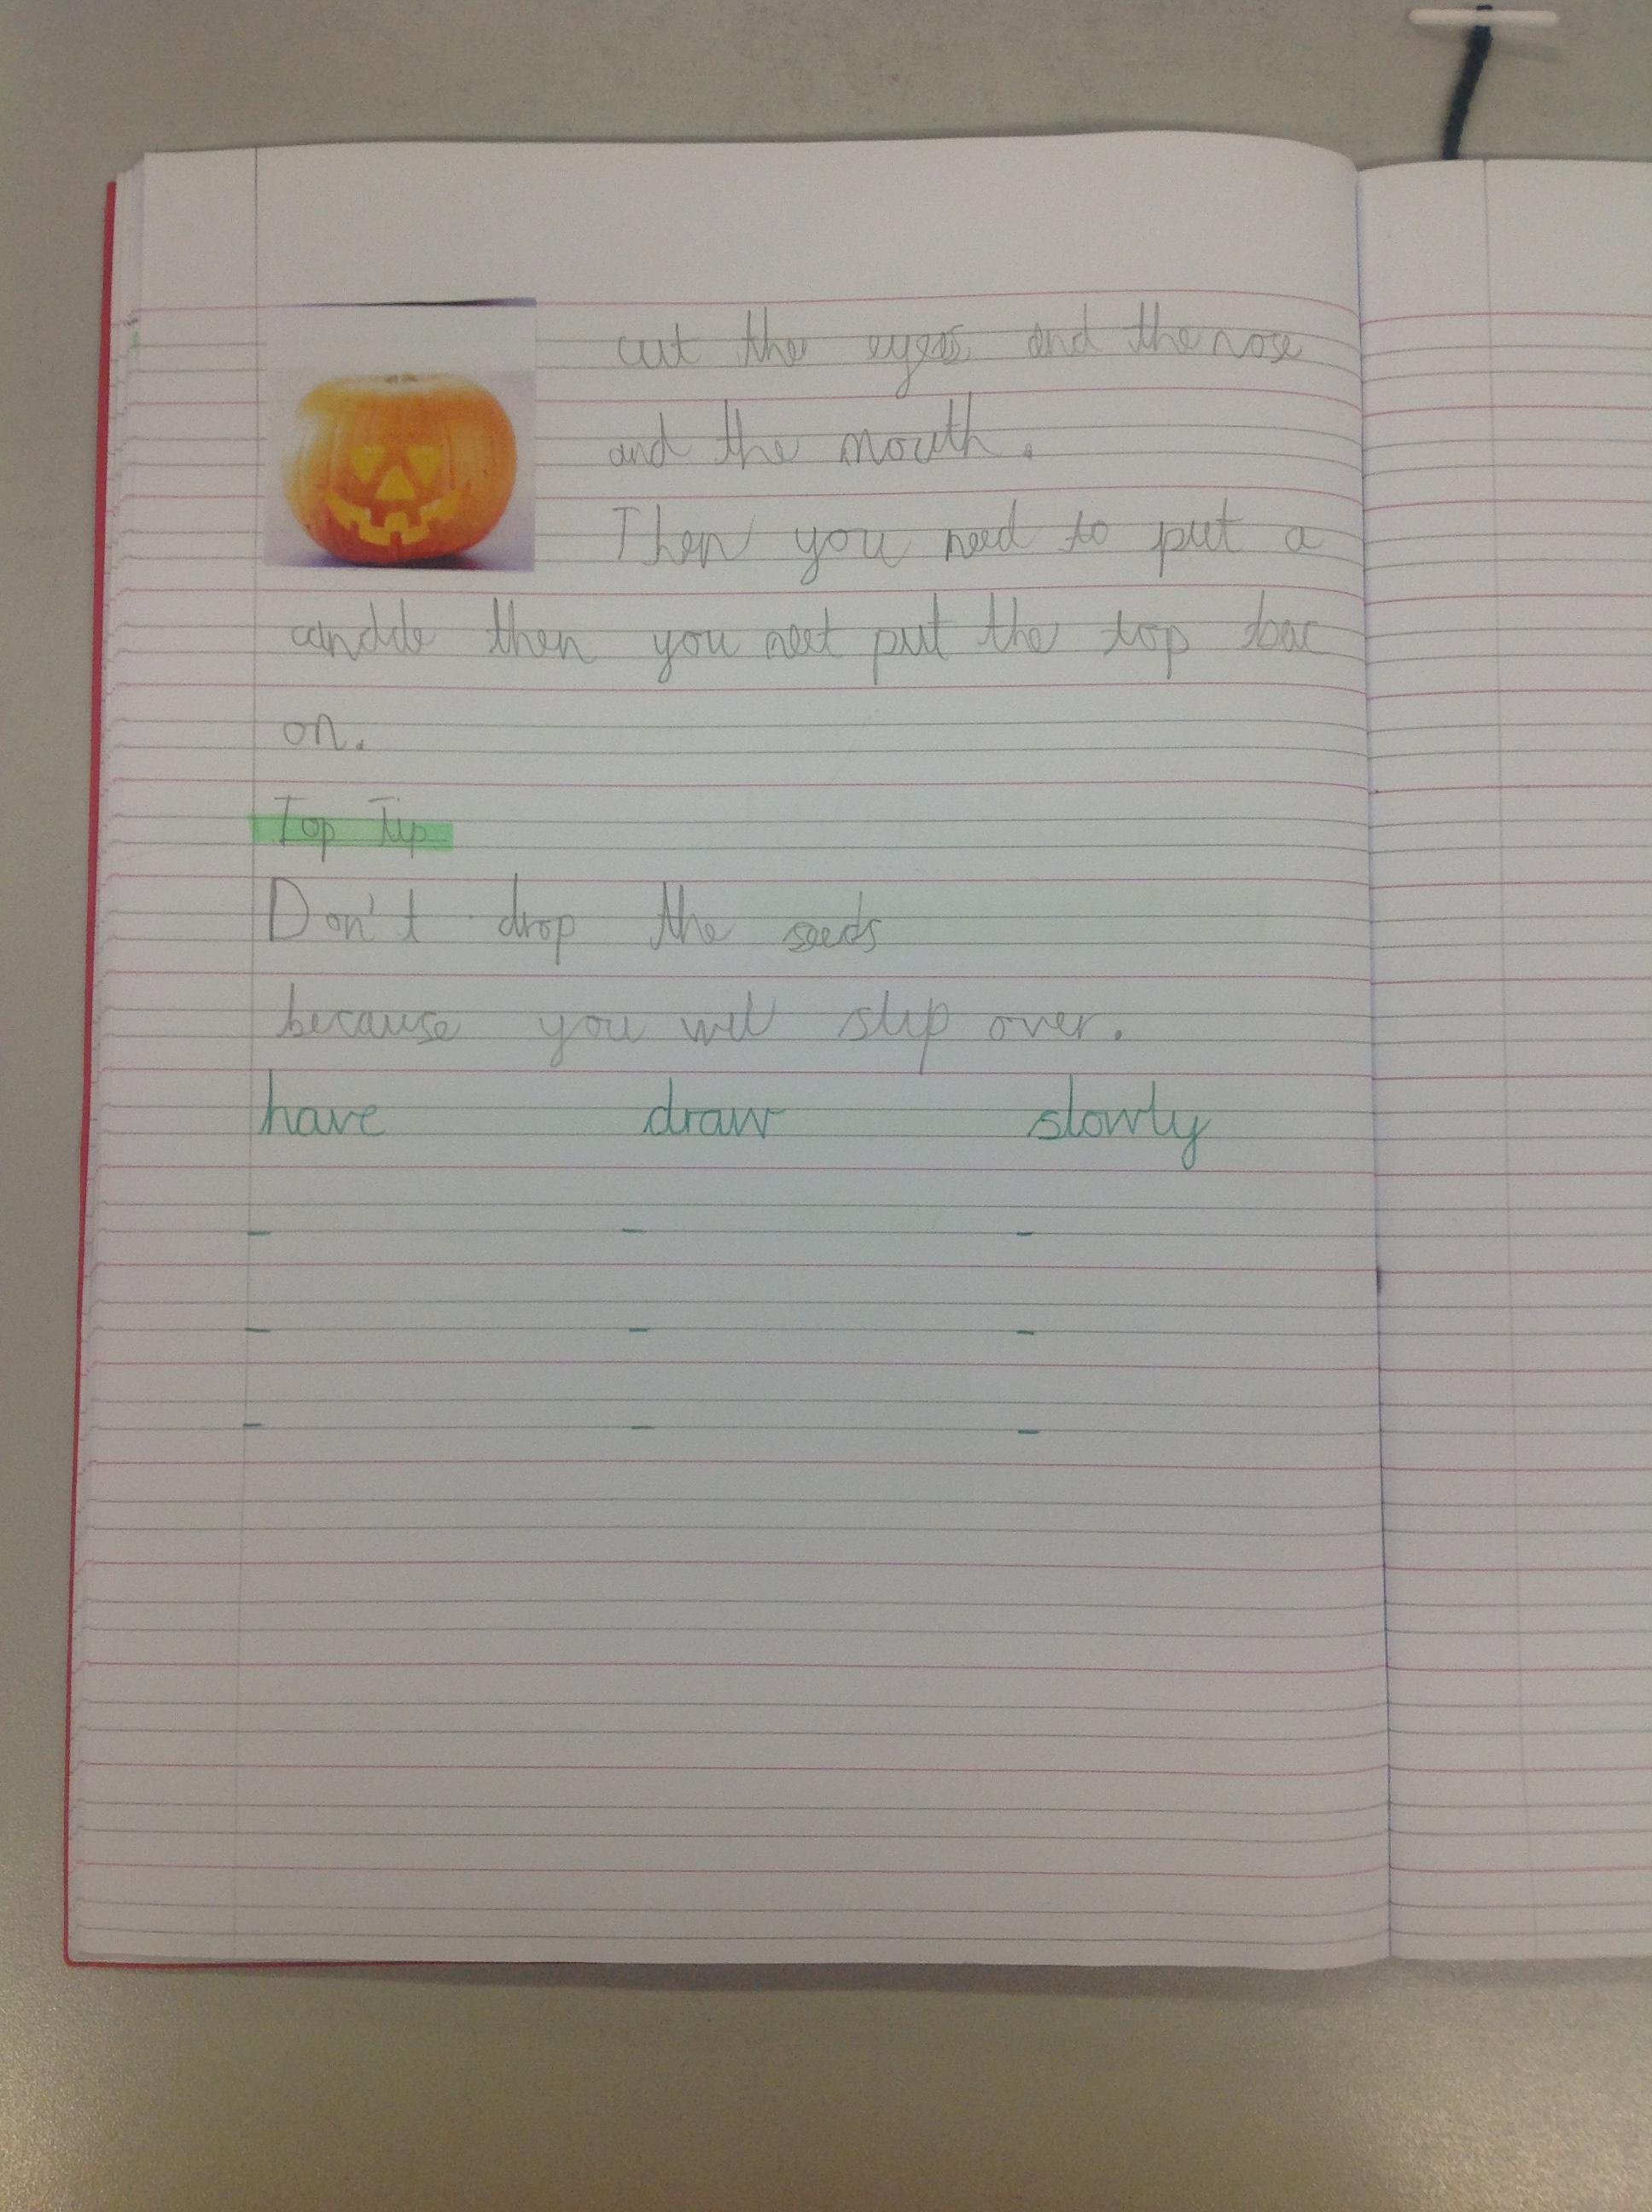 cut the eyes and the nose
and the mouth.
Then you need to put a
candile then you neet put the top bac
on.
Top Tip
Don't drop the seeds
because you will slip over.
have draw slowly